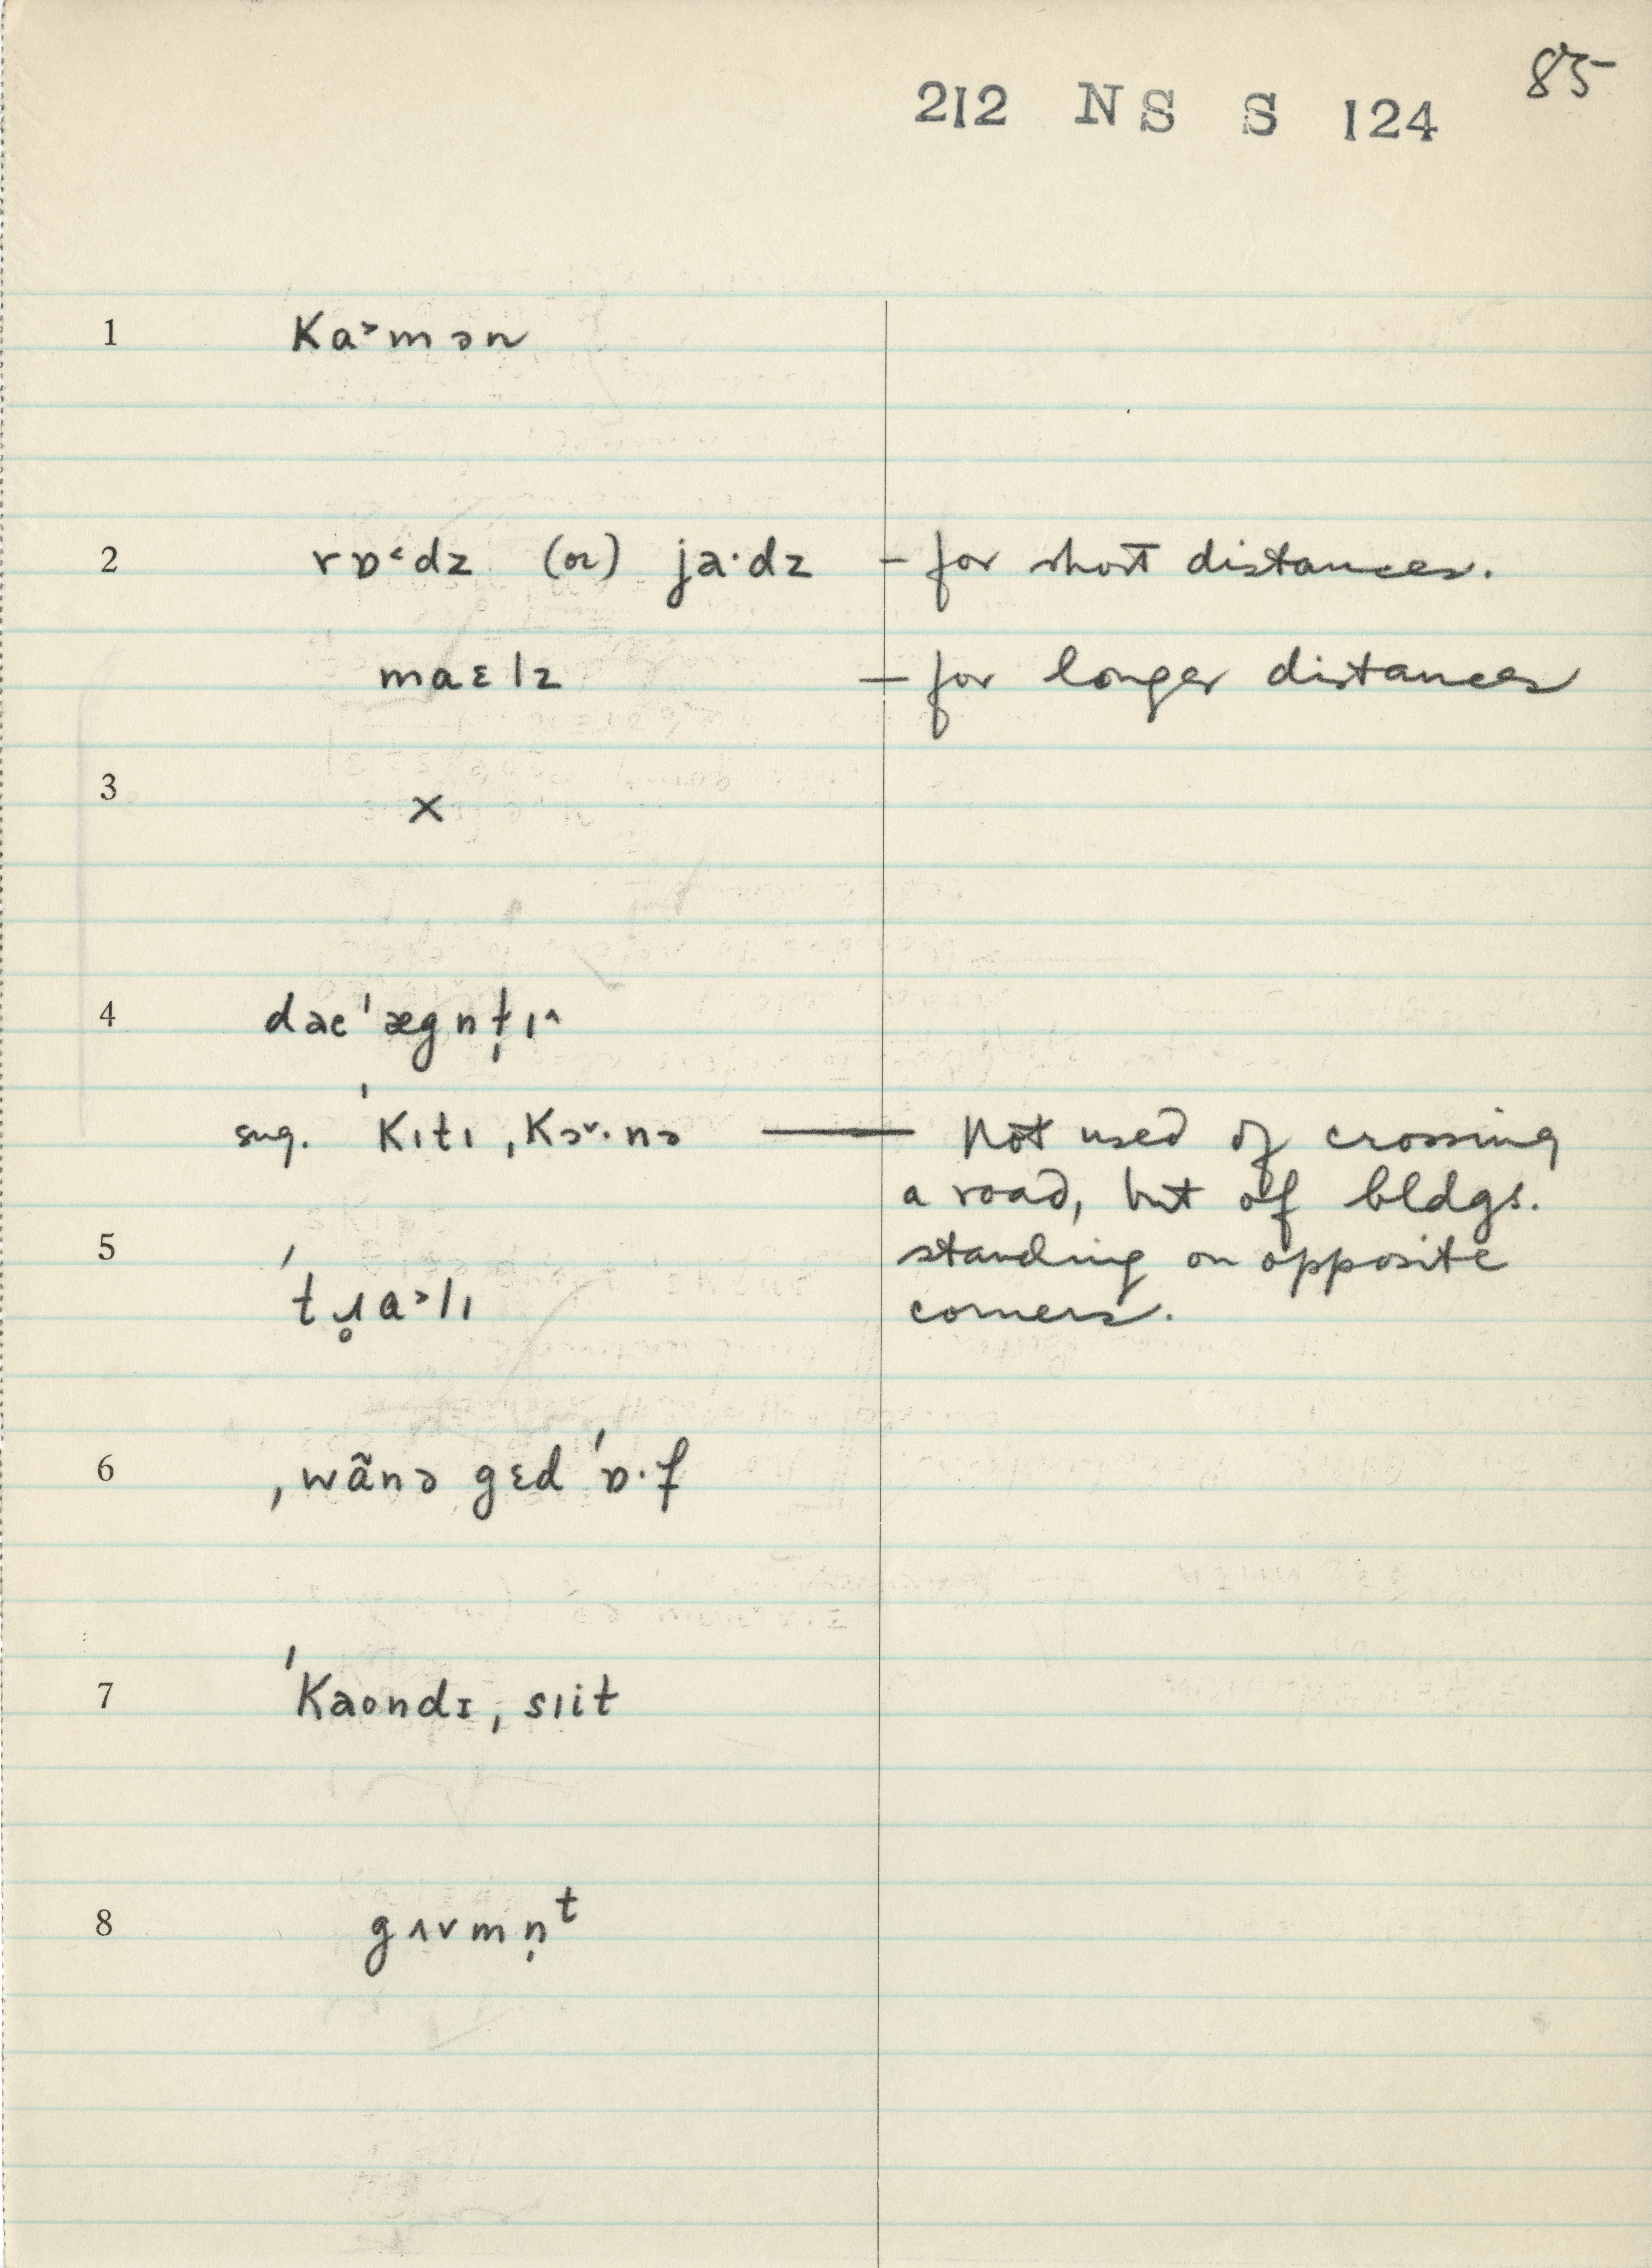 85
212 NS S 124
1 Ka˃mən
2 rɒ˂dz (or) ja·dz – for short distances.
maɛlz – for longer distances
3 x
4 daeˈægnt̡ɪ˄
sug. ˈKɪtɪ ˌKɔ˅·nə — Not used of crossing
a road, but of bldgs.
5 standing on opposite
ˈtɹ̥a˃lɪ corners.
6 ˌwãnə gɛd ˈɒ·f
7 ˈKaondɪ ˌsɪit
8 gʌvmn̩ᵗ